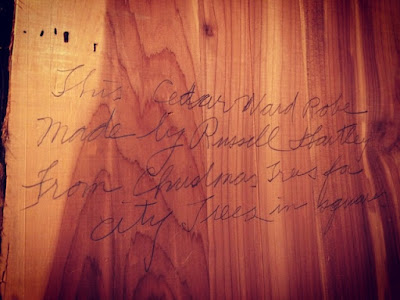 This Cedar Ward Robe
Made by Russell Hartley
From Christmas Trees fa
city Trees in square